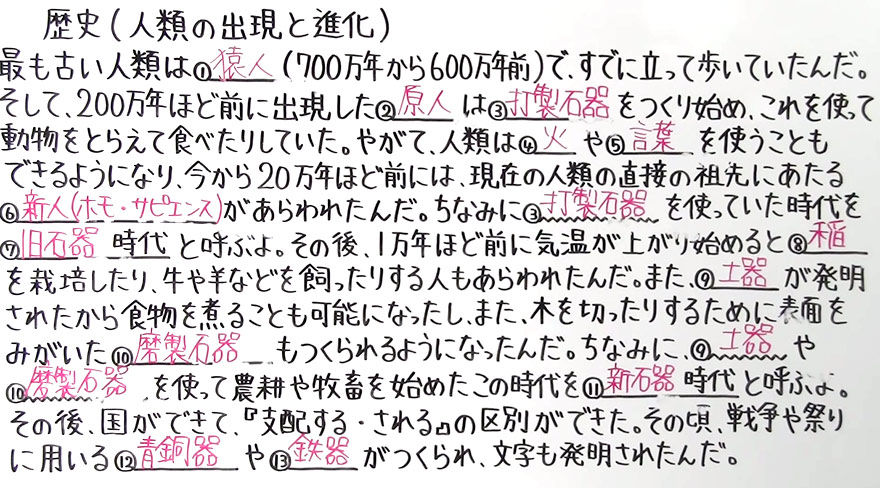 歴史(人類の出現と進化)
最も古い人類は①猿人(700万年から600万年前)で、すでに立って歩いていたんだ。
そして、200万年ほど前に出現した②原人は③打製石器をつくり始め、これを使って
動物をとらえて食べたりしていた。やがて、人類は④火や⑤言葉を使うことも
できるようになり、今から20万年ほど前には、現在の人類の直接の祖先にあたる
⑥新人(ホモ・サピエンス)があらわれたんだ。ちなみに③打製石器を使っていた時代を
⑦旧石器時代と呼ぶよ。その後、1万年ほど前に気温が上がり始めると⑧稲
を栽培したり、牛や羊などを飼ったりする人もあらわれたんだ。また、⑨土器が発明
されたから食物を煮ることも可能になったし、また、木を切ったりするために表面を
みがいた⑩磨製石器もつくられるようになったんだ。ちなみに、⑨土器や
⑩磨製石器を使って農耕や牧畜を始めたこの時代を⑪新石器時代と呼ぶよ。
その後、国ができて、『支配する・される』の区別ができた。その頃、戦争や祭り
に用いる⑫青銅器や⑬鉄器がつくられ、文字も発明されたんだ。